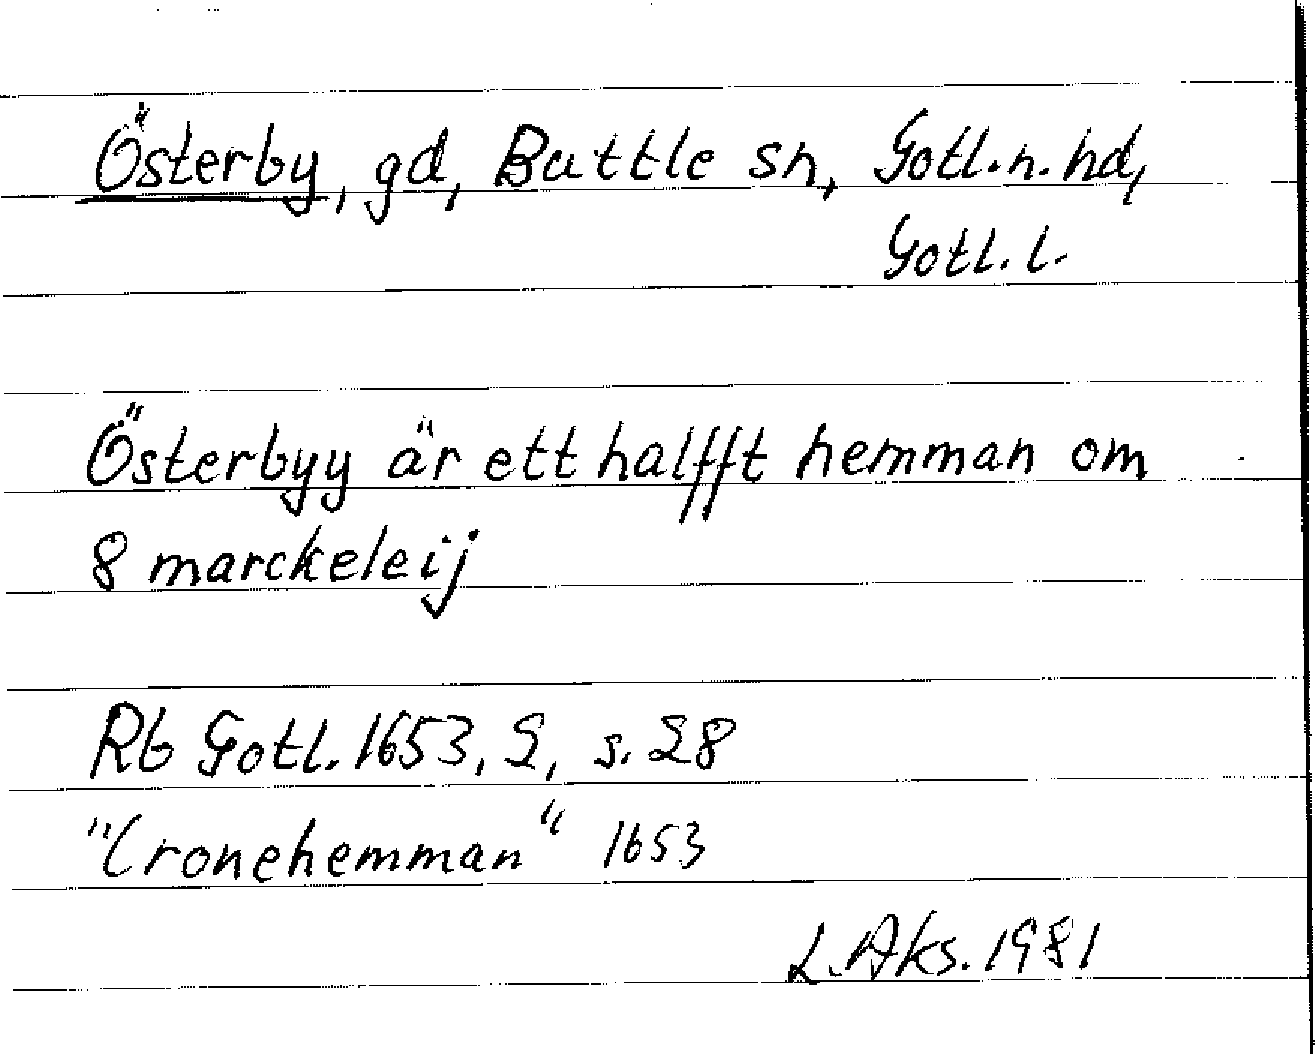 Österby, gd, Buttle sn, Gotl.n.hd,
Gotl.l.
Österbyy är ett halfft hemman om
8 marckeleij
Rb Gotl. 1653, 2, s. 28
"Cronehemman" 1653
L.Aks. 1981